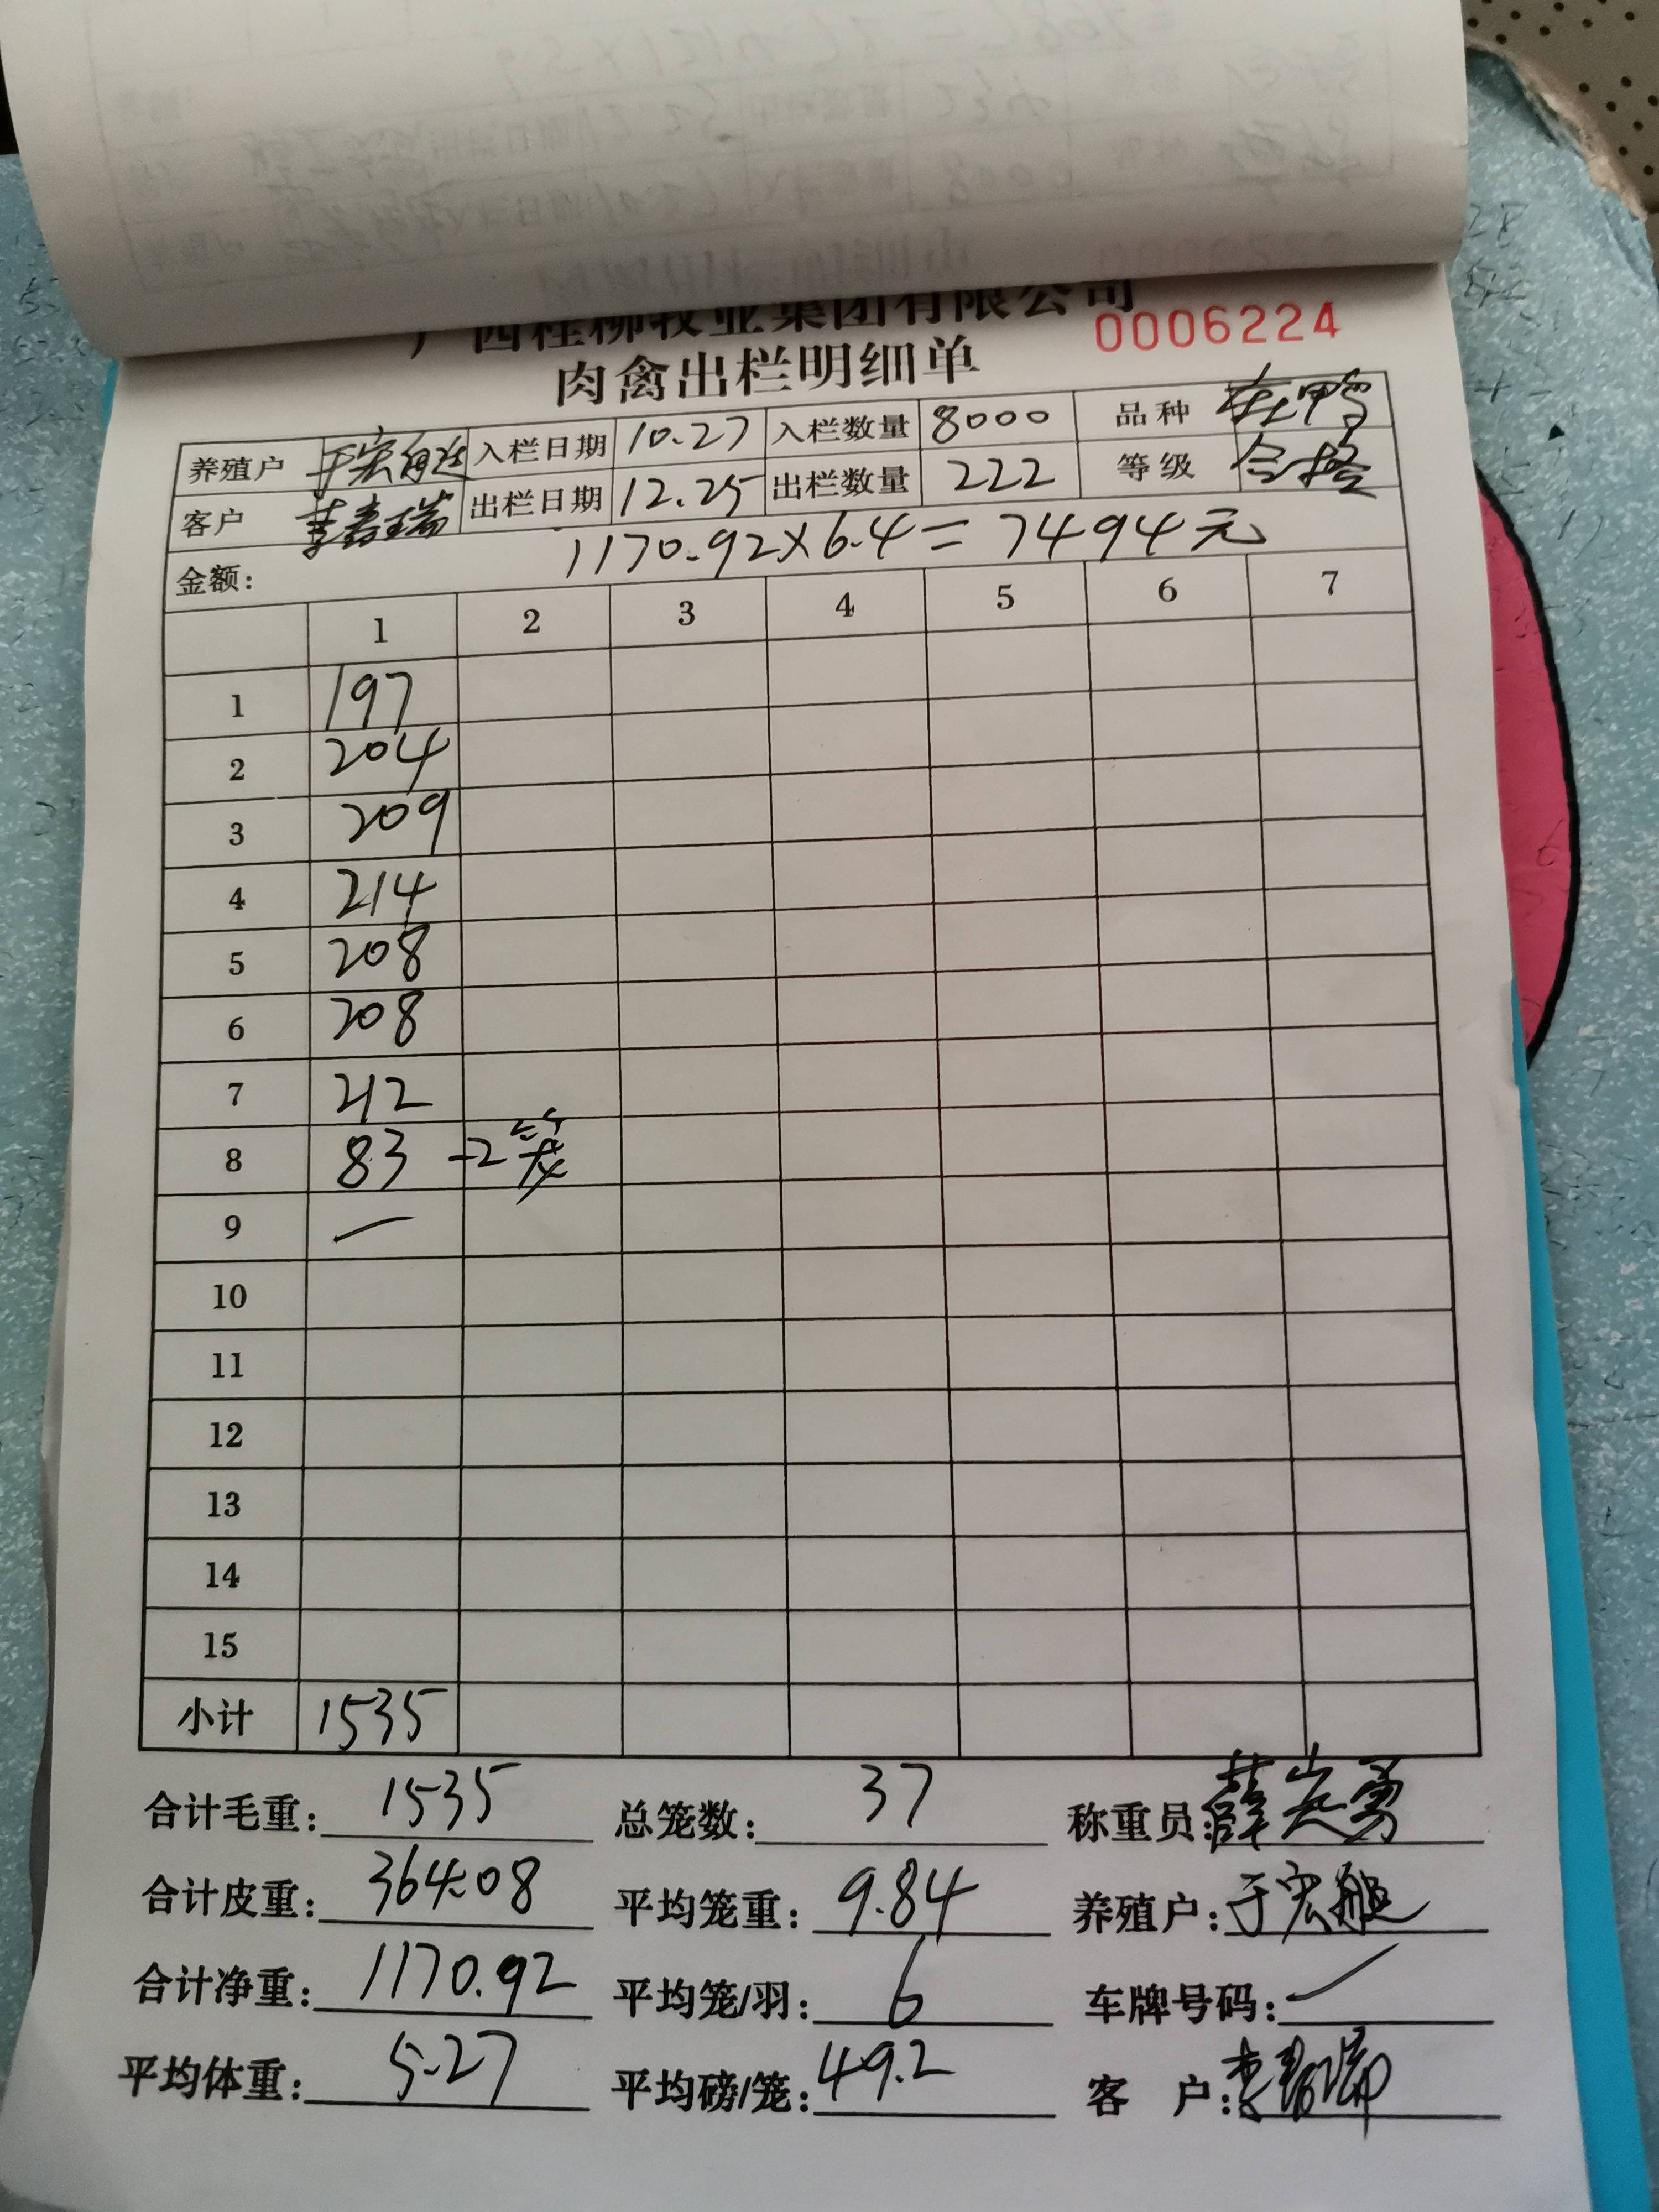 广西桂柳牧业集团有限公司
肉禽出栏明细单 0006224
养殖户 于宏 入栏日期 10.27 入栏数量 8000 品种 鸭
客户 瑞 出栏日期 12.25 出栏数量 222 等级 合格
金额: 1170.92×6.4=7494元
1 2 3 4 5 6 7
1 197
2 204
3 209
4 214
5 208
6 208
7 212
8 83 -2笼
9 —
10
11
12
13
14
15
小计 1535
合计毛重: 1535 总笼数: 37 称重员: 薛
合计皮重: 364.08 平均笼重: 9.84 养殖户: 于宏
合计净重: 1170.92 平均笼/羽: 6 车牌号码:
平均体重: 5.27 平均磅/笼: 49.2 客 户: 李